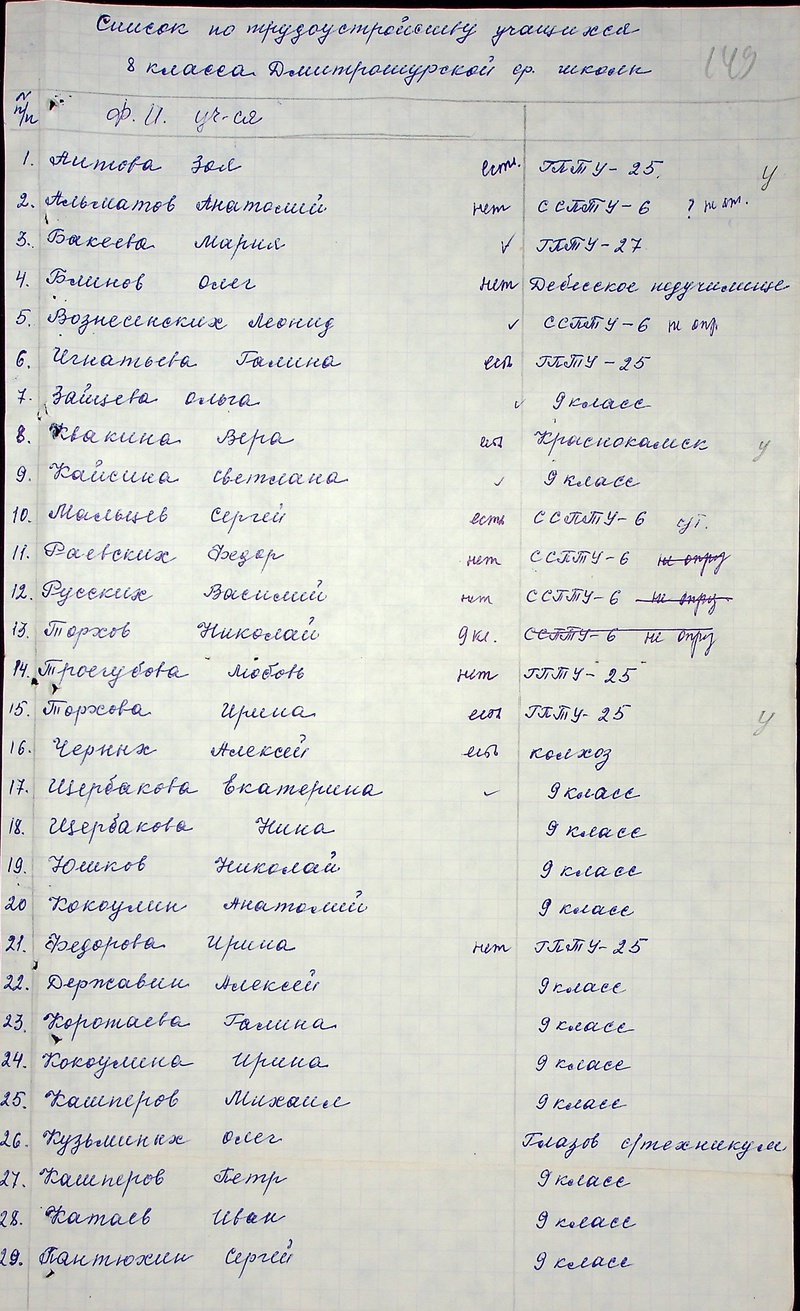 Список по трудоустройству учащихся
8 класса Дмитрошурской ср. школы
149
№ п/п Ф. И. уч-ся
1. Аитова Зоя есть ГПТУ-25. У
2. Альматов Анатолий нет ССПТУ-6 ?
3. Бакеева Мария ✓ ГПТУ-27
4. Блинов Олег нет Дебесское педучилище
5. Вознесенских Леонид ✓ ССПТУ-6 не опр
6. Игнатьева Галина есть ГПТУ-25
7. Зайцева Ольга ✓ 9 класс
8. Квакина Вера есть Краснокамск У
9. Кайсина Светлана ✓ 9 класс
10. Мальцев Сергей есть ССПТУ-6
11. Раевских Федор нет ССПТУ-6 не опрд
12. Русских Василий нет ССПТУ-6 не опрд
13. Торхов Николай 9 кл. ССПТУ-6 не опрд
14. Троегубова Любовь нет ГПТУ-25
15. Торхова Ирина есть ГПТУ-25 У
16. Черных Алексей есть колхоз
17. Щербакова Екатерина ✓ 9 класс
18. Щербакова Нина 9 класс
19. Юшков Николай 9 класс
20 Кокоулин Анатолий 9 класс
21. Федорова Ирина нет ГПТУ-25
22. Державин Алексей 9 класс
23. Коротаева Галина 9 класс
24. Кокоулина Ирина 9 класс
25. Кашперов Михаил 9 класс
26. Кузьминых Олег Глазов с/техникум
27. Кашперов Петр 9 класс
28. Катаев Иван 9 класс
29. Пантюхин Сергей 9 класс